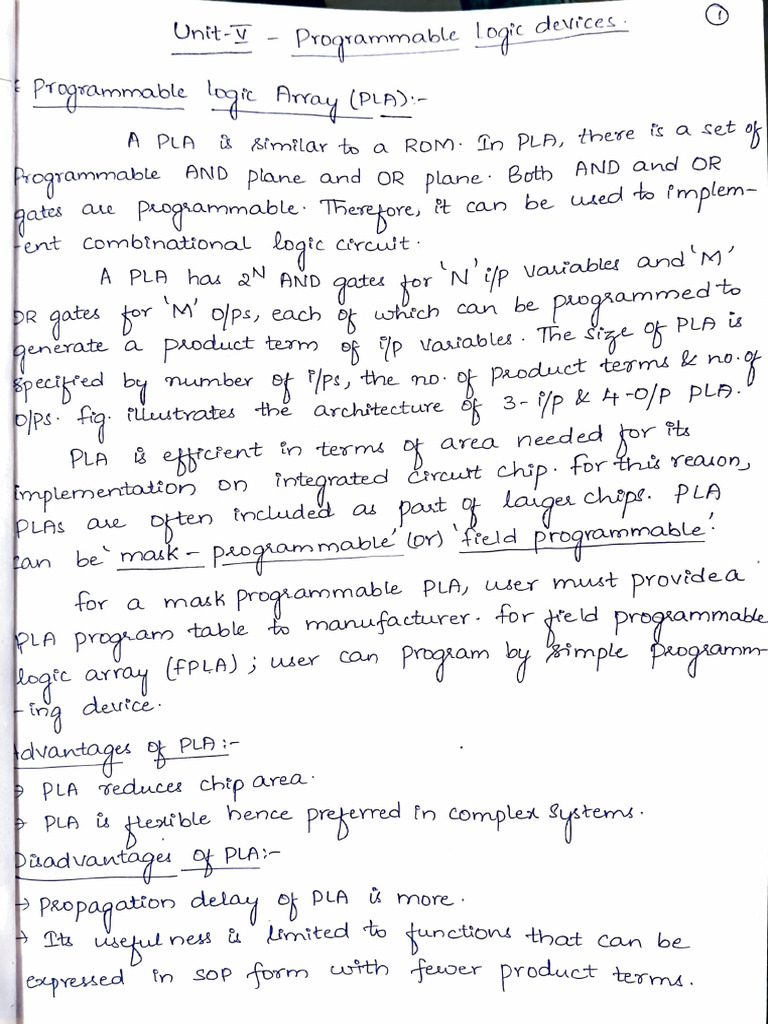 1
Unit-V - Programmable logic devices.
Programmable logic Array (PLA):-
A PLA is similar to a ROM. In PLA, there is a set of
Programmable AND plane and OR plane. Both AND and OR
gates are programmable. Therefore, it can be used to implem-
-ent combinational logic circuit.
A PLA has 2^N AND gates for 'N' i/p variables and 'M'
OR gates for 'M' o/ps, each of which can be programmed to
generate a product term of i/p variables. The size of PLA is
specified by number of i/ps, the no. of product terms & no. of
o/ps. fig. illustrates the architecture of 3-i/p & 4-o/p PLA.
PLA is efficient in terms of area needed for its
implementation on integrated circuit chip. for this reason,
PLAs are often included as part of larger chips. PLA
can be 'mask-programmable' (or) 'field programmable'.
for a mask programmable PLA, user must provide a
PLA program table to manufacturer. for field programmable
logic array (fPLA); user can program by simple programm-
-ing device.
Advantages of PLA:-
→ PLA reduces chip area.
→ PLA is flexible hence preferred in complex systems.
Disadvantages of PLA:-
→ Propagation delay of PLA is more.
→ Its usefulness is limited to functions that can be
expressed in SOP form with fewer product terms.